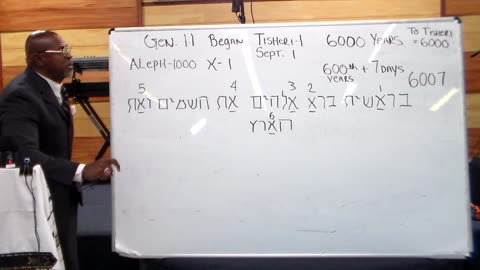 GEN. 1:1 BEGAN TISHERI-1 6000 YEARS TO TISHERI =6000
SEPT. 1
ALEPH-1000 X-1 600th + 7 DAYS 6007
YEARS
5 4 3 2 1
בראשית ברא אלהים את השמים ואת
6
הארץ